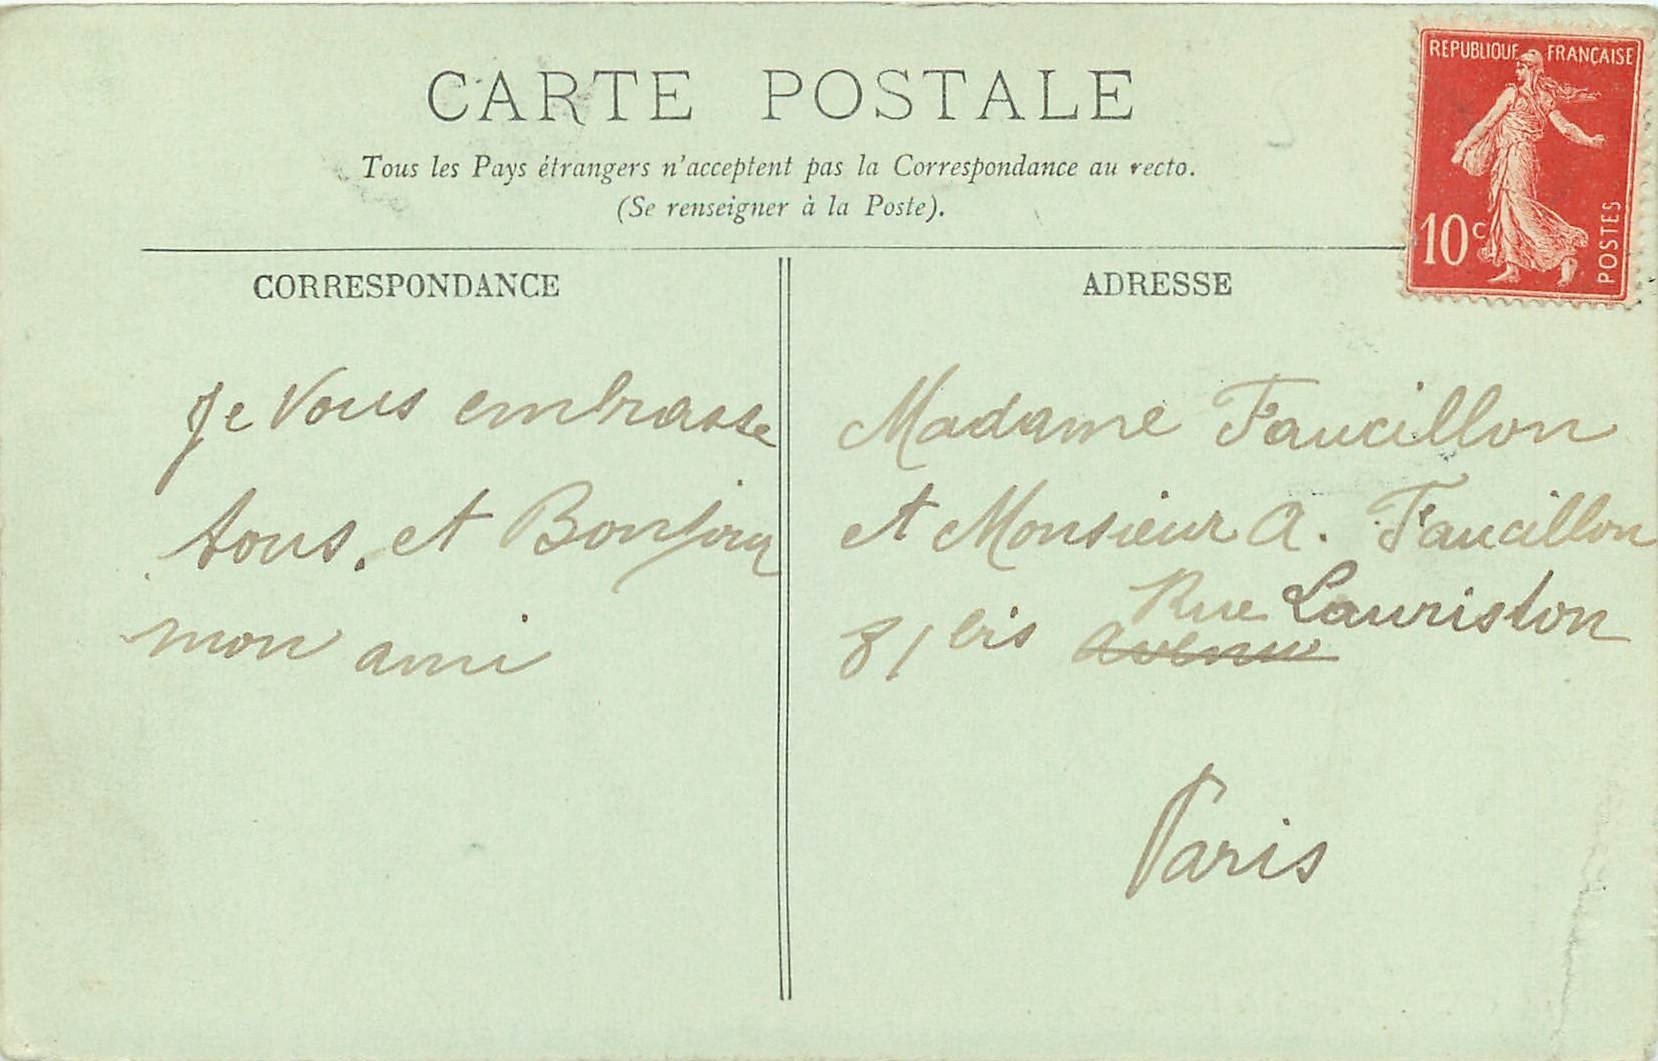 CARTE POSTALE
Tous les Pays étrangers n'acceptent pas la Correspondance au recto.
(Se renseigner à la Poste).
REPUBLIQUE FRANÇAISE
10c
POSTES
CORRESPONDANCE
Je Vous embrasse
tous. et Bonjour
mon ami
ADRESSE
Madame Faucillon
et Monsieur A. Faucillon
81 bis avenue Rue Lauriston
Paris